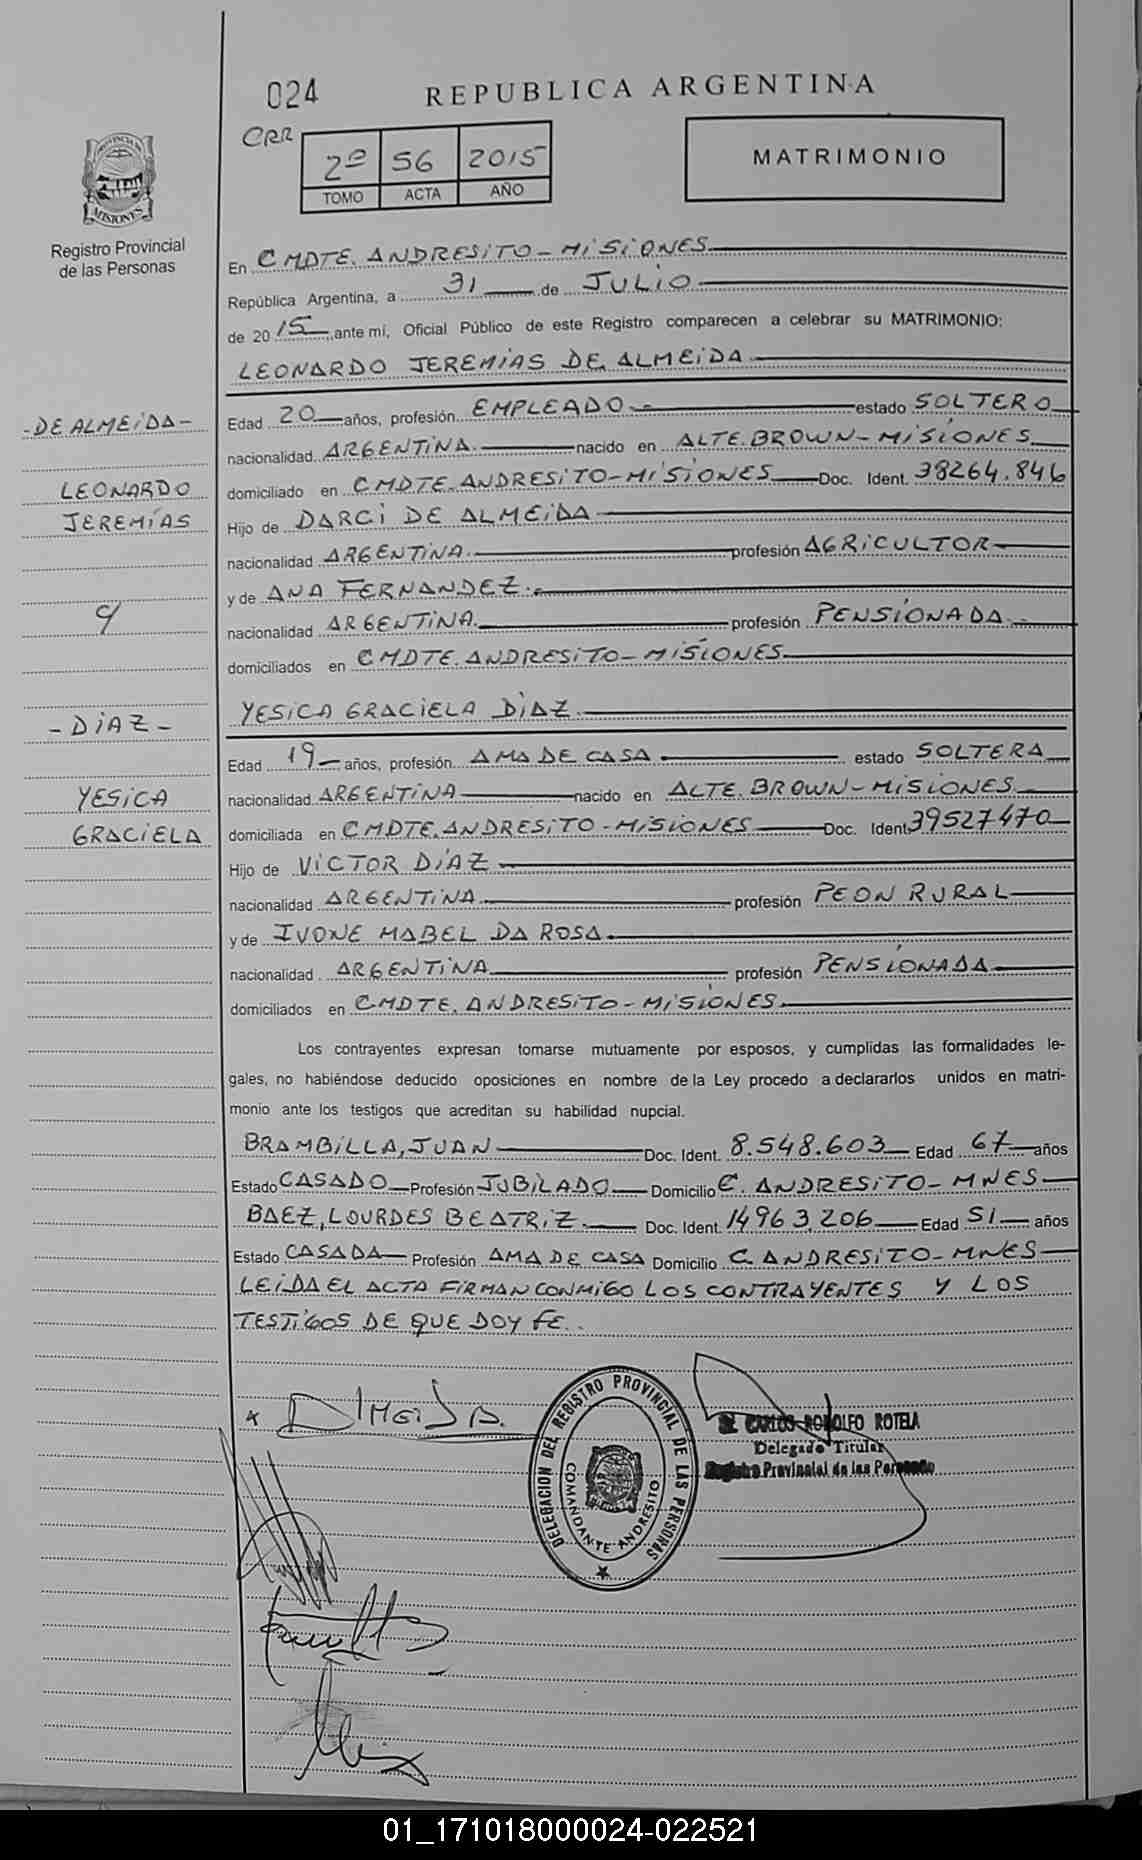 024
REPUBLICA ARGENTINA
CRR
2º 56 2015
TOMO ACTA AÑO
MATRIMONIO
PROVINCIA DE
MISIONES
Registro Provincial
de las Personas
En CMDTE. ANDRESITO - MISIONES
República Argentina, a 31 de JULIO
de 2015, ante mí, Oficial Público de este Registro comparecen a celebrar su MATRIMONIO:
LEONARDO JEREMIAS DE ALMEIDA
- DE ALMEIDA -
LEONARDO
JEREMÍAS
Edad 20 años, profesión EMPLEADO.- estado SOLTERO
nacionalidad ARGENTINA. nacido en ALTE. BROWN - MISIONES
domiciliado en CMDTE. ANDRESITO - MISIONES Doc. Ident. 38264.846
Hijo de DARCI DE ALMEIDA
nacionalidad ARGENTINA. profesión AGRICULTOR
y de ANA FERNANDEZ.
nacionalidad ARGENTINA. profesión PENSIONADA.
domiciliados en CMDTE. ANDRESITO - MISIONES.
- DIAZ -
YESICA
GRACIELA
YESICA GRACIELA DÍAZ.
Edad 19 años, profesión AMA DE CASA estado SOLTERA
nacionalidad ARGENTINA nacido en ALTE. BROWN - MISIONES
domiciliada en CMDTE. ANDRESITO - MISIONES Doc. Ident 39527470
Hijo de VICTOR DÍAZ
nacionalidad ARGENTINA. profesión PEON RURAL
y de IVONE MABEL DA ROSA.
nacionalidad ARGENTINA profesión PENSIONADA
domiciliados en CMDTE. ANDRESITO - MISIONES.
Los contrayentes expresan tomarse mutuamente por esposos, y cumplidas las formalidades le-
gales, no habiéndose deducido oposiciones en nombre de la Ley procedo a declararlos unidos en matri-
monio ante los testigos que acreditan su habilidad nupcial.
BRAMBILLA, JUAN Doc. Ident. 8.548.603 Edad 67 años
Estado CASADO Profesión JUBILADO Domicilio C. ANDRESITO - MNES
BAEZ, LOURDES BEATRIZ. Doc. Ident. 14963.206 Edad 51 años
Estado CASADA Profesión AMA DE CASA Domicilio C. ANDRESITO - MNES
LEIDA EL ACTA FIRMAN CONMIGO LOS CONTRAYENTES Y LOS
TESTIGOS DE QUE DOY FE.
DELEGACION DEL REGISTRO PROVINCIAL DE LAS PERSONAS
COMANDANTE ANDRESITO
CARLOS RODOLFO ROTELA
Delegado Titular
Registro Provincial de las Personas
01_171018000024-022521